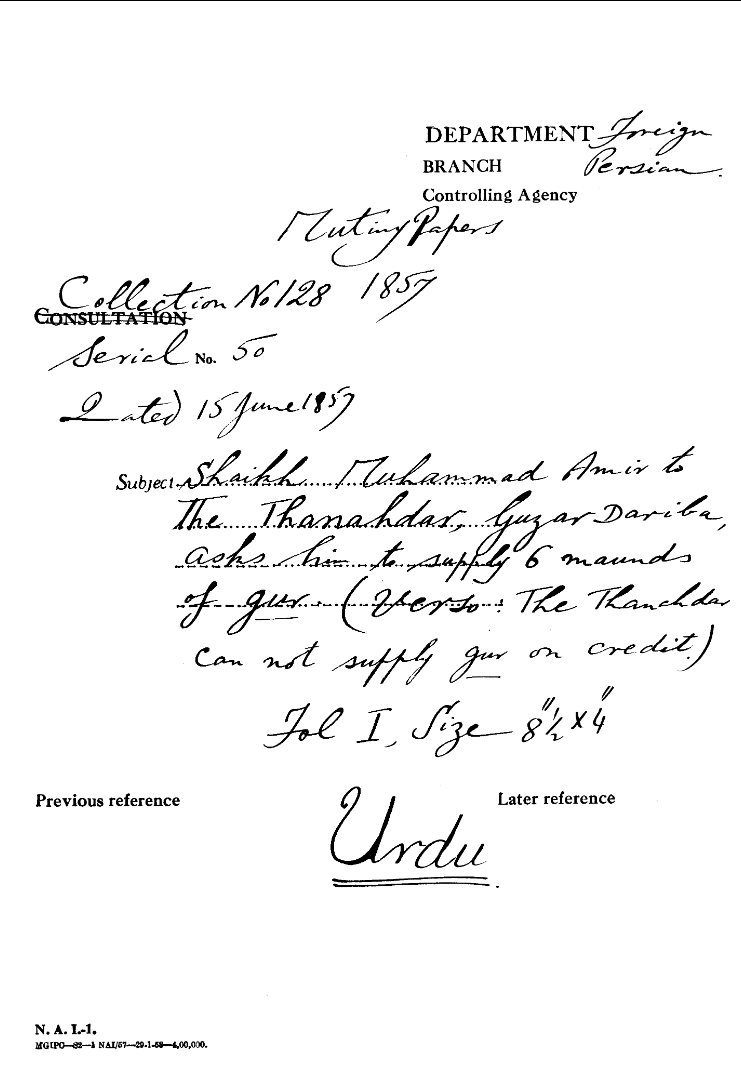 DEPARTMENT Foreign
BRANCH Persian.
Controlling Agency
Mutiny Papers
Collection No 128 1857
CONSULTATION
Serial No. 50
Dated 15 June 1857
Subject Shaikh Muhammad Amir to
The Thanahdar, Guzar Dariba,
asks him to supply 6 maunds
of gur. (Verso: The Thanahdar
can not supply gur on credit.)
Fol I, Size 8½" x 4"
Previous reference Later reference
Urdu.
N. A. I.-1.
MGIPC—S2—1 NAI/57—29-1-58—4,00,000.